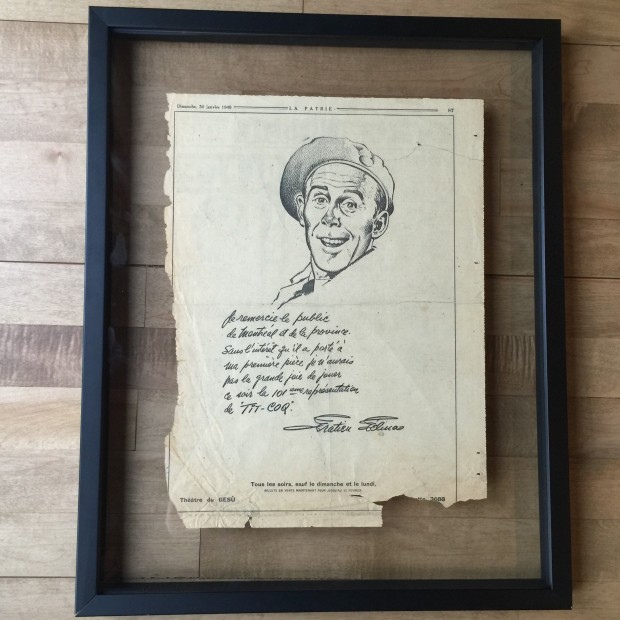 Dimanche, 30 janvier 1949 LA PATRIE 67
Je remercie le public
de Montréal et de la province.
Sans l'intérêt qu'il a porté à
ma première pièce, je n'aurais
pas la grande joie de jouer
ce soir la 101 ème représentation
de "TIT-COQ".
Gratien Gélinas
Tous les soirs, sauf le dimanche et le lundi.
BILLETS EN VENTE MAINTENANT POUR
Théâtre du GESÙ